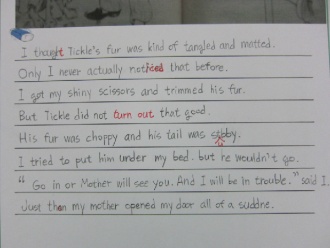 I thought Tickle's fur was kind of tangled and matted.
Only I never actually noticed that before.
I got my shiny scissors and trimmed his fur.
But Tickle did not turn out that good.
His fur was choppy and his tail was stubby.
I tried to put him under my bed. but he wouldn't go.
" Go in or Mother will see you. And I will be in trouble." said I.
Just then my mother opened my door all of a suddne.